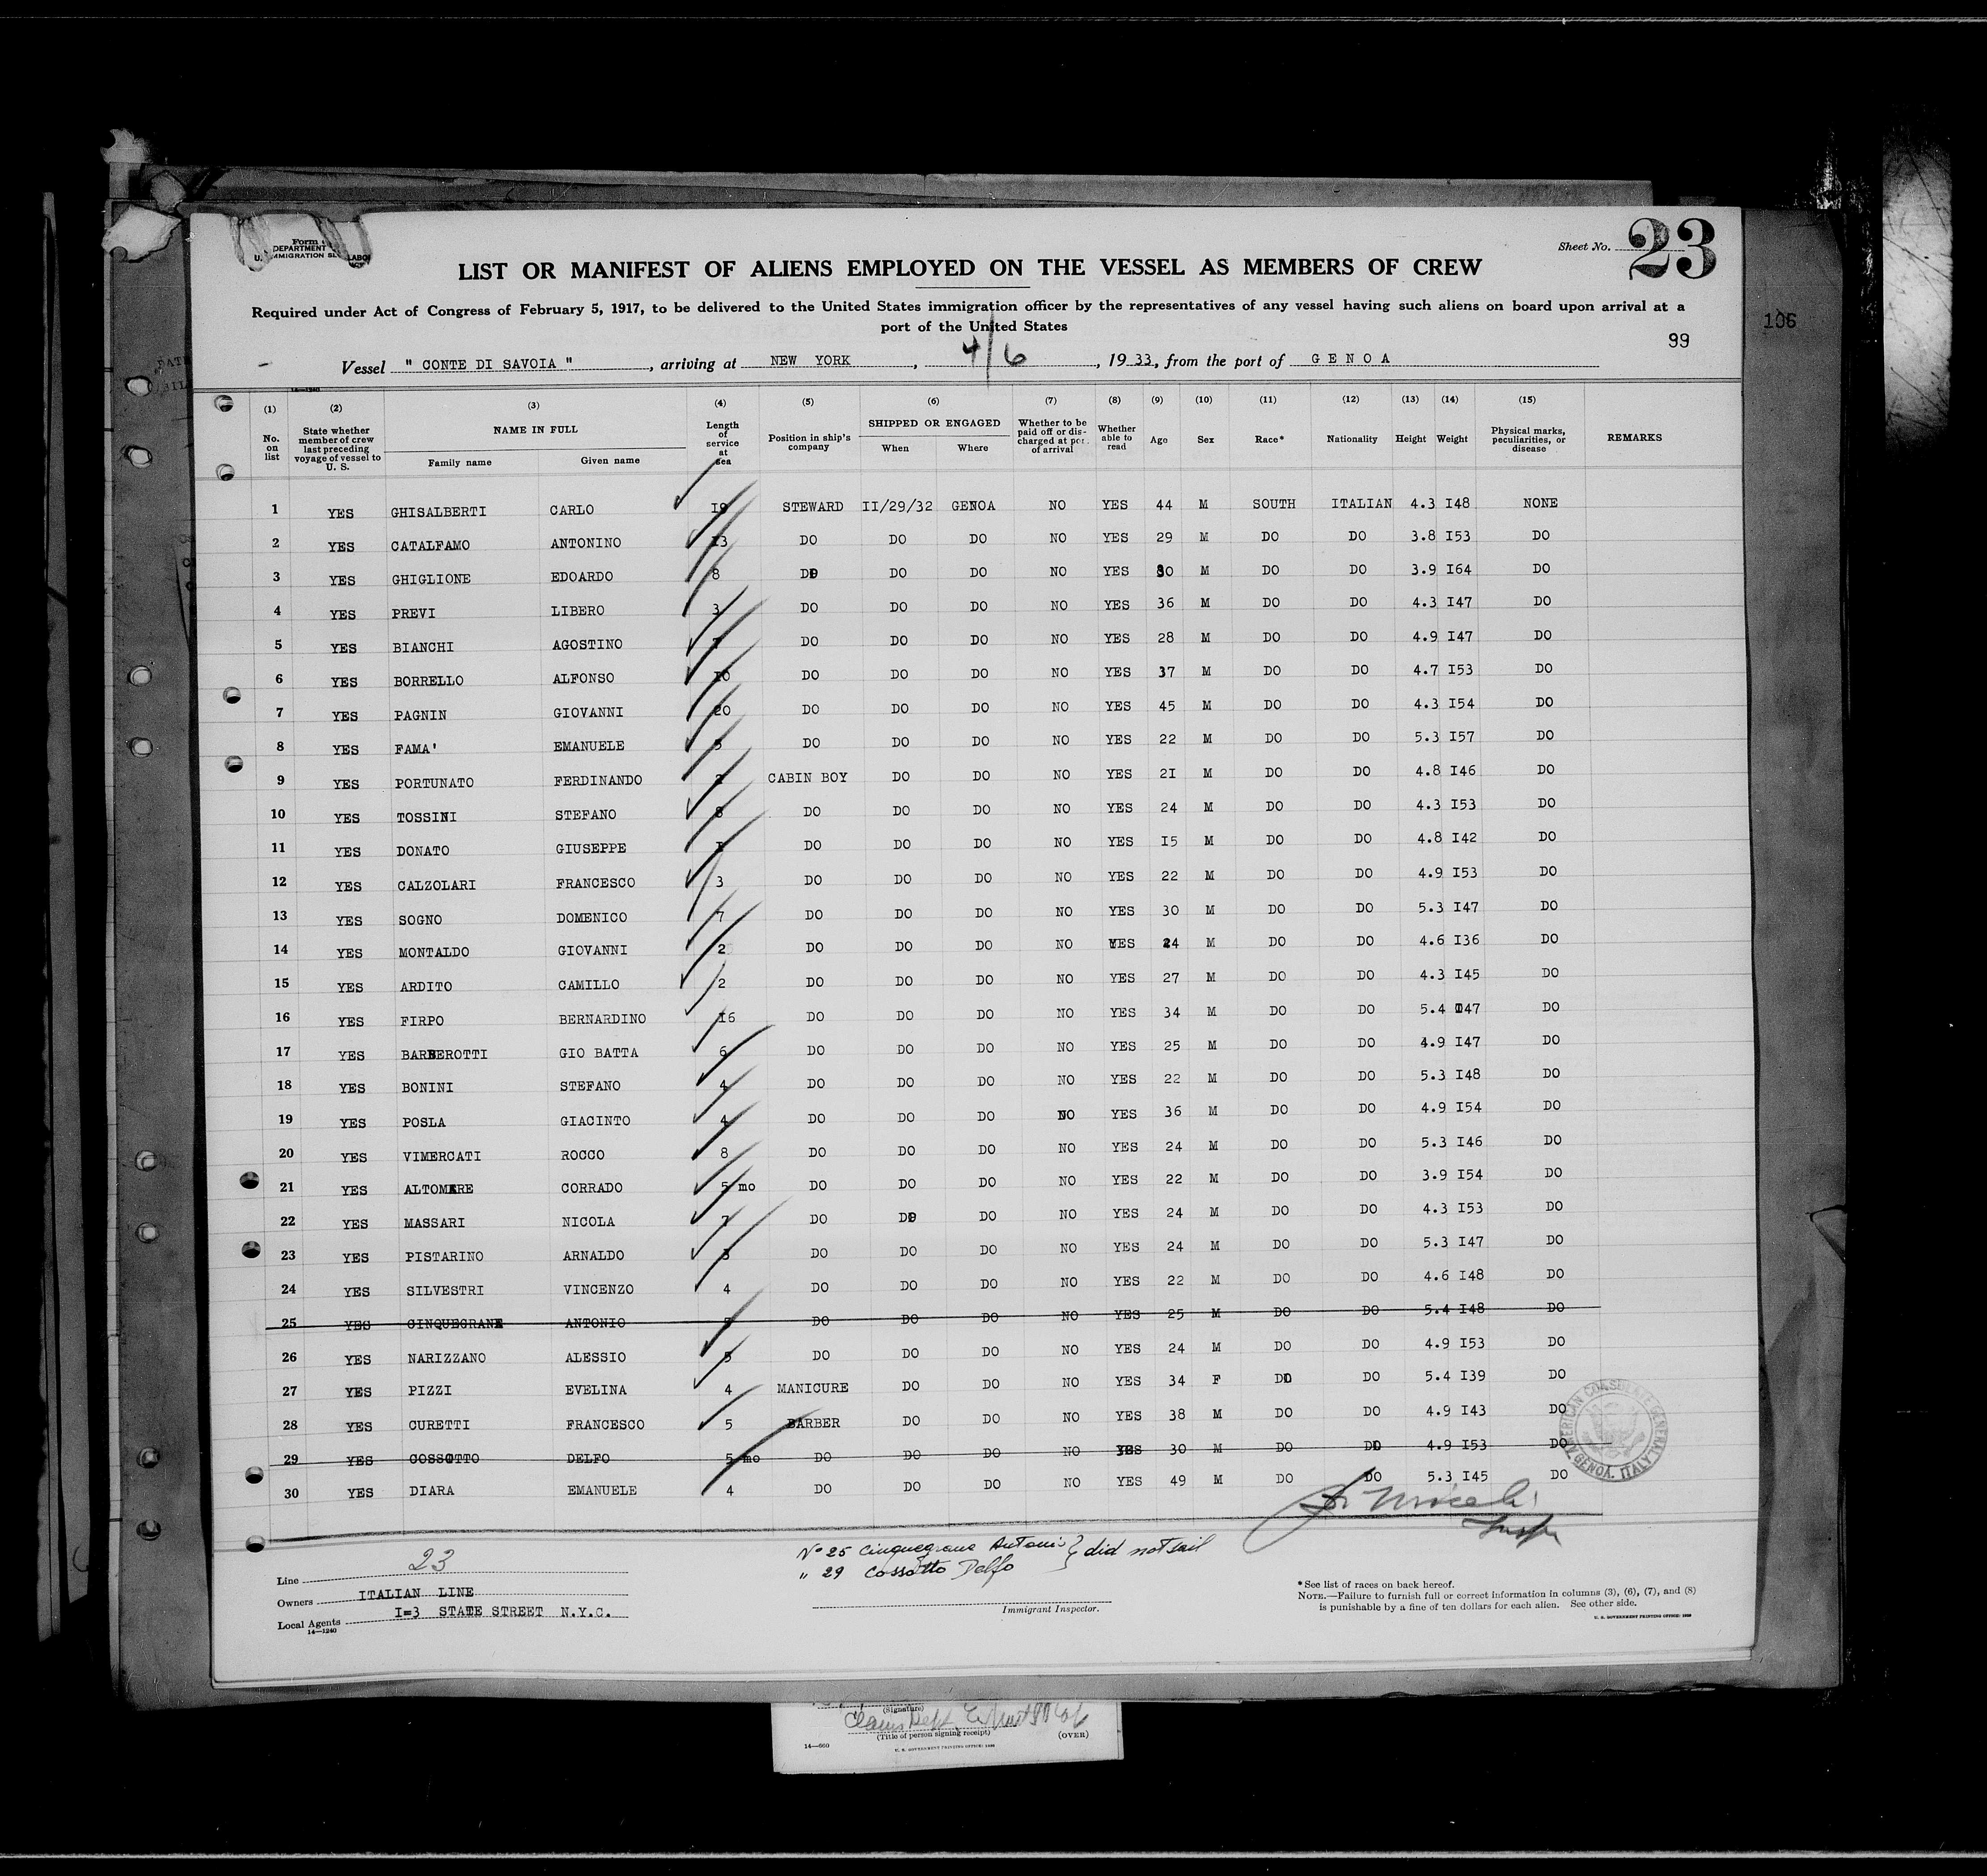 Form
DEPARTMENT LABOR
U. IMMIGRATION
Sheet No. 23
LIST OR MANIFEST OF ALIENS EMPLOYED ON THE VESSEL AS MEMBERS OF CREW
Required under Act of Congress of February 5, 1917, to be delivered to the United States immigration officer by the representatives of any vessel having such aliens on board upon arrival at a
port of the United States
106
99
Vessel " CONTE DI SAVOIA ", arriving at NEW YORK, 4/6, 1933, from the port of GENOA
14—1240
(1) No. on list (2) State whether member of crew last preceding voyage of vessel to U. S. (3) NAME IN FULL Family name Given name (4) Length of service at sea (5) Position in ship's company (6) SHIPPED OR ENGAGED When Where (7) Whether to be paid off or discharged at port of arrival (8) Whether able to read (9) Age (10) Sex (11) Race* (12) Nationality (13) Height (14) Weight (15) Physical marks, peculiarities, or disease REMARKS
1 YES GHISALBERTI CARLO I9 STEWARD II/29/32 GENOA NO YES 44 M SOUTH ITALIAN 4.3 I48 NONE
2 YES CATALFAMO ANTONINO I3 DO DO DO NO YES 29 M DO DO 3.8 I53 DO
3 YES GHIGLIONE EDOARDO 8 DO DO DO NO YES 30 M DO DO 3.9 I64 DO
4 YES PREVI LIBERO 3 DO DO DO NO YES 36 M DO DO 4.3 I47 DO
5 YES BIANCHI AGOSTINO 7 DO DO DO NO YES 28 M DO DO 4.9 I47 DO
6 YES BORRELLO ALFONSO I0 DO DO DO NO YES 37 M DO DO 4.7 I53 DO
7 YES PAGNIN GIOVANNI 20 DO DO DO NO YES 45 M DO DO 4.3 I54 DO
8 YES FAMA' EMANUELE 5 DO DO DO NO YES 22 M DO DO 5.3 I57 DO
9 YES PORTUNATO FERDINANDO 2 CABIN BOY DO DO NO YES 2I M DO DO 4.8 I46 DO
10 YES TOSSINI STEFANO 8 DO DO DO NO YES 24 M DO DO 4.3 I53 DO
11 YES DONATO GIUSEPPE I DO DO DO NO YES I5 M DO DO 4.8 I42 DO
12 YES CALZOLARI FRANCESCO 3 DO DO DO NO YES 22 M DO DO 4.9 I53 DO
13 YES SOGNO DOMENICO 7 DO DO DO NO YES 30 M DO DO 5.3 I47 DO
14 YES MONTALDO GIOVANNI 2 DO DO DO NO YES 24 M DO DO 4.6 I36 DO
15 YES ARDITO CAMILLO 2 DO DO DO NO YES 27 M DO DO 4.3 I45 DO
16 YES FIRPO BERNARDINO I6 DO DO DO NO YES 34 M DO DO 5.4 I47 DO
17 YES BARBEROTTI GIO BATTA 6 DO DO DO NO YES 25 M DO DO 4.9 I47 DO
18 YES BONINI STEFANO 4 DO DO DO NO YES 22 M DO DO 5.3 I48 DO
19 YES POSLA GIACINTO 4 DO DO DO NO YES 36 M DO DO 4.9 I54 DO
20 YES VIMERCATI ROCCO 8 DO DO DO NO YES 24 M DO DO 5.3 I46 DO
21 YES ALTOMARE CORRADO 5 mo DO DO DO NO YES 22 M DO DO 3.9 I54 DO
22 YES MASSARI NICOLA 7 DO DO DO NO YES 24 M DO DO 4.3 I53 DO
23 YES PISTARINO ARNALDO 3 DO DO DO NO YES 24 M DO DO 5.3 I47 DO
24 YES SILVESTRI VINCENZO 4 DO DO DO NO YES 22 M DO DO 4.6 I48 DO
25 YES CINQUEGRANE ANTONIO DO DO DO NO YES 25 M DO DO 5.4 I48 DO
26 YES NARIZZANO ALESSIO 5 DO DO DO NO YES 24 M DO DO 4.9 I53 DO
27 YES PIZZI EVELINA 4 MANICURE DO DO NO YES 34 F DO DO 5.4 I39 DO
28 YES CURETTI FRANCESCO 5 BARBER DO DO NO YES 38 M DO DO 4.9 I43 DO
29 YES COSSOTTO DELFO 5 mo DO DO DO NO YES 30 M DO DO 4.9 I53 DO
30 YES DIARA EMANUELE 4 DO DO DO NO YES 49 M DO DO 5.3 I45 DO
AMERICAN CONSULATE GENERAL GENOA, ITALY
Nº 25 Cinquegrana Antonio } did not sail
" 29 Cossotto Delfo
Line 23
Owners ITALIAN LINE
Local Agents I=3 STATE STREET N.Y.C.
14—1240
Immigrant Inspector.
*See list of races on back hereof.
NOTE.—Failure to furnish full or correct information in columns (3), (6), (7), and (8)
is punishable by a fine of ten dollars for each alien. See other side.
U. S. GOVERNMENT PRINTING OFFICE: 1928
(Signature)
Claims Dept
(Title of person signing receipt)
14—660
U. S. GOVERNMENT PRINTING OFFICE
(OVER)